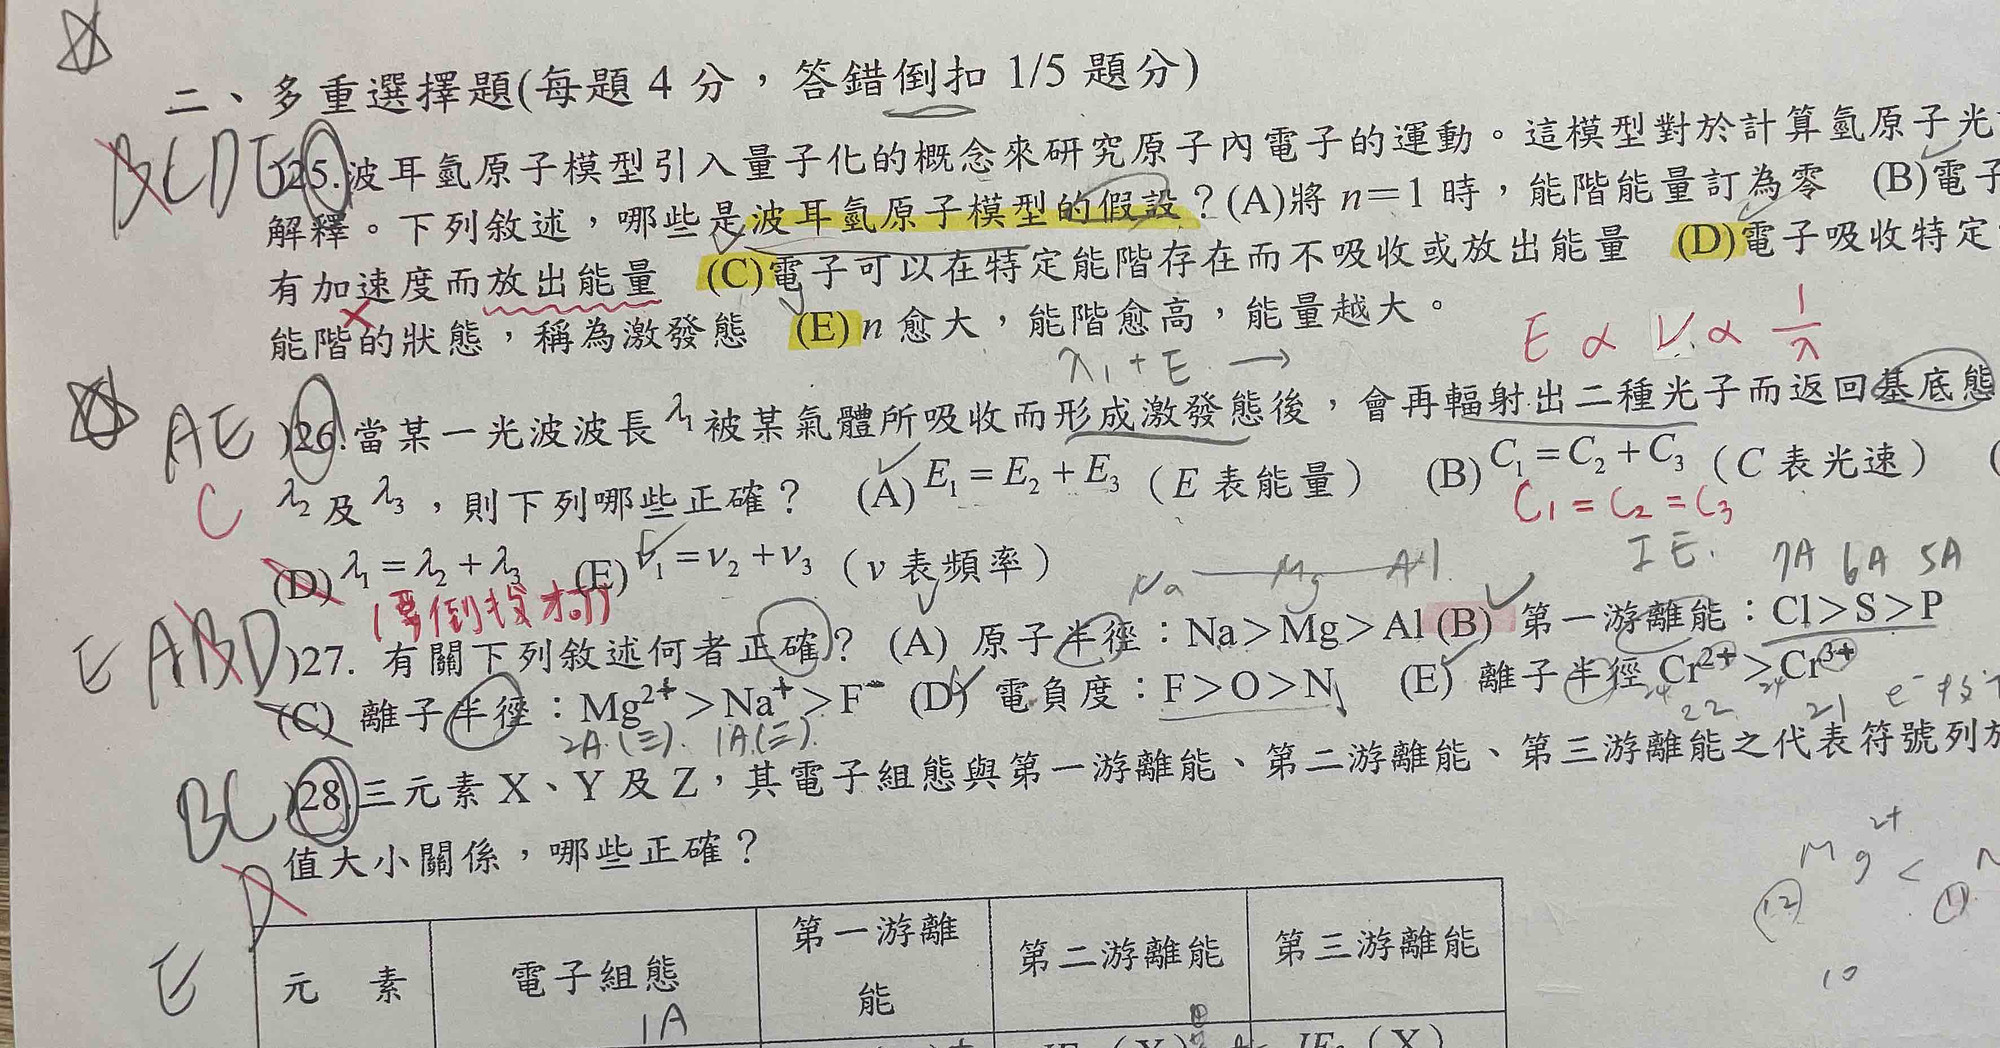 二、多重選擇題(每題 4 分，答錯倒扣 1/5 題分)
BCDE )25.波耳氫原子模型引入量子化的概念來研究原子內電子的運動。這模型對於計算氫原子光
解釋。下列敘述，哪些是波耳氫原子模型的假設？(A)將 n＝1 時，能階能量訂為零 (B)電子
有加速度而放出能量 (C)電子可以在特定能階存在而不吸收或放出能量 (D)電子吸收特定
能階的狀態，稱為激發態 (E) n 愈大，能階愈高，能量越大。
E ∝ ν ∝ 1/λ
λ₁ + E →
AE )26.當某一光波波長 λ₁ 被某氣體所吸收而形成激發態後，會再輻射出二種光子而返回基底態
C λ₂ 及 λ₃，則下列哪些正確？ (A) E₁ = E₂ + E₃（E 表能量） (B) C₁ = C₂ + C₃（C 表光速）(
C₁ = C₂ = C₃
(D) λ₁ = λ₂ + λ₃ (E) ν₁ = ν₂ + ν₃（ν 表頻率）
(要倒投才可)
Na Mg Al IE. 7A 6A 5A
E ABD )27. 有關下列敘述何者正確？ (A) 原子半徑：Na＞Mg＞Al (B) 第一游離能：Cl＞S＞P
(C) 離子半徑：Mg²⁺＞Na⁺＞F⁻ (D) 電負度：F＞O＞N (E) 離子半徑 Cr²⁺＞Cr³⁺
2A.(三). 1A.(三). 24 22 24 21 e⁻
BC )28.三元素 X、Y 及 Z，其電子組態與第一游離能、第二游離能、第三游離能之代表符號列
值大小關係，哪些正確？
D
E
Mg²⁺ <
12 11
10
元 素 電子組態 第一游離能 第二游離能 第三游離能
1A
IE₃ (X)